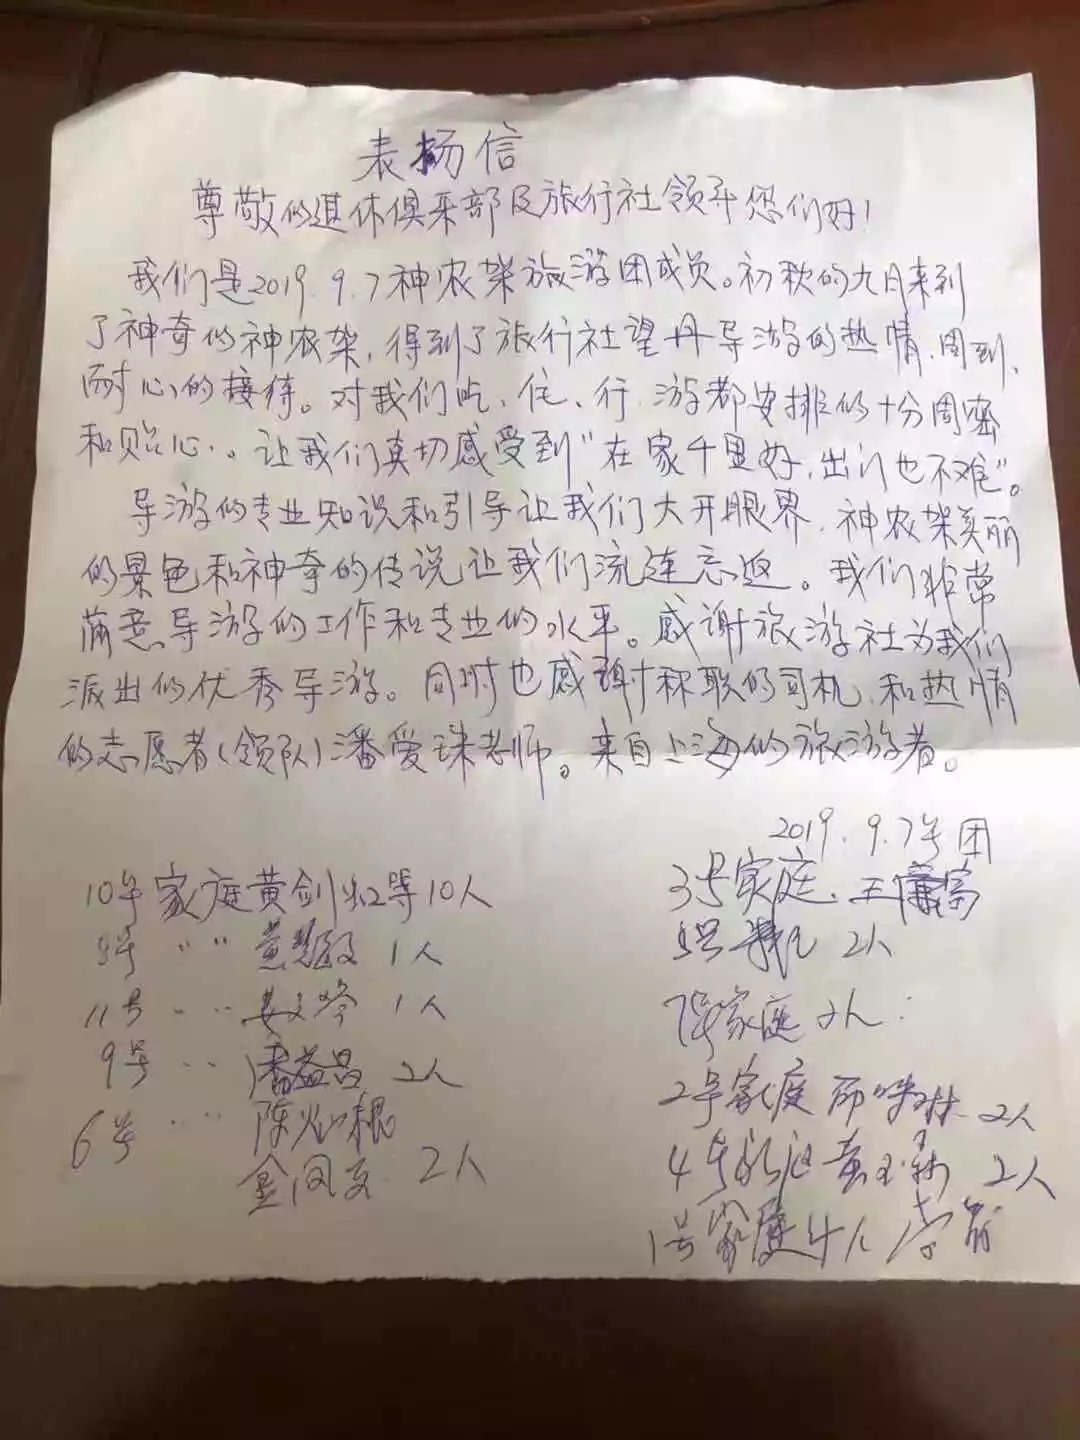 表扬信
尊敬的退休俱乐部及旅行社领导您们好！
我们是2019.9.7神农架旅游团成员。初秋的九月来到
了神奇的神农架，得到了旅行社望丹导游的热情、周到、
耐心的接待。对我们吃、住、行、游都安排的十分周密
和贴心。让我们真切感受到"在家千里好，出门也不难"。
导游的专业知识和引导让我们大开眼界，神农架美丽
的景色和神奇的传说让我们流连忘返。我们非常
满意导游的工作和专业的水平。感谢旅游社为我们
派出的优秀导游。同时也感谢称职的司机，和热情
的志愿者（领队）潘爱珠老师。来自上海的旅游者。
2019.9.7号团
10号家庭黄剑虹等10人
3号家庭、王富
8号 〃 〃 黄 1人
2人
11号 〃 姜文峰 1人
7号家庭 2人
9号 〃 潘益昌 2人
2号家庭 2人
6号 〃 陈根
4号家庭黄 2人
金凤 2人
1号家庭4人